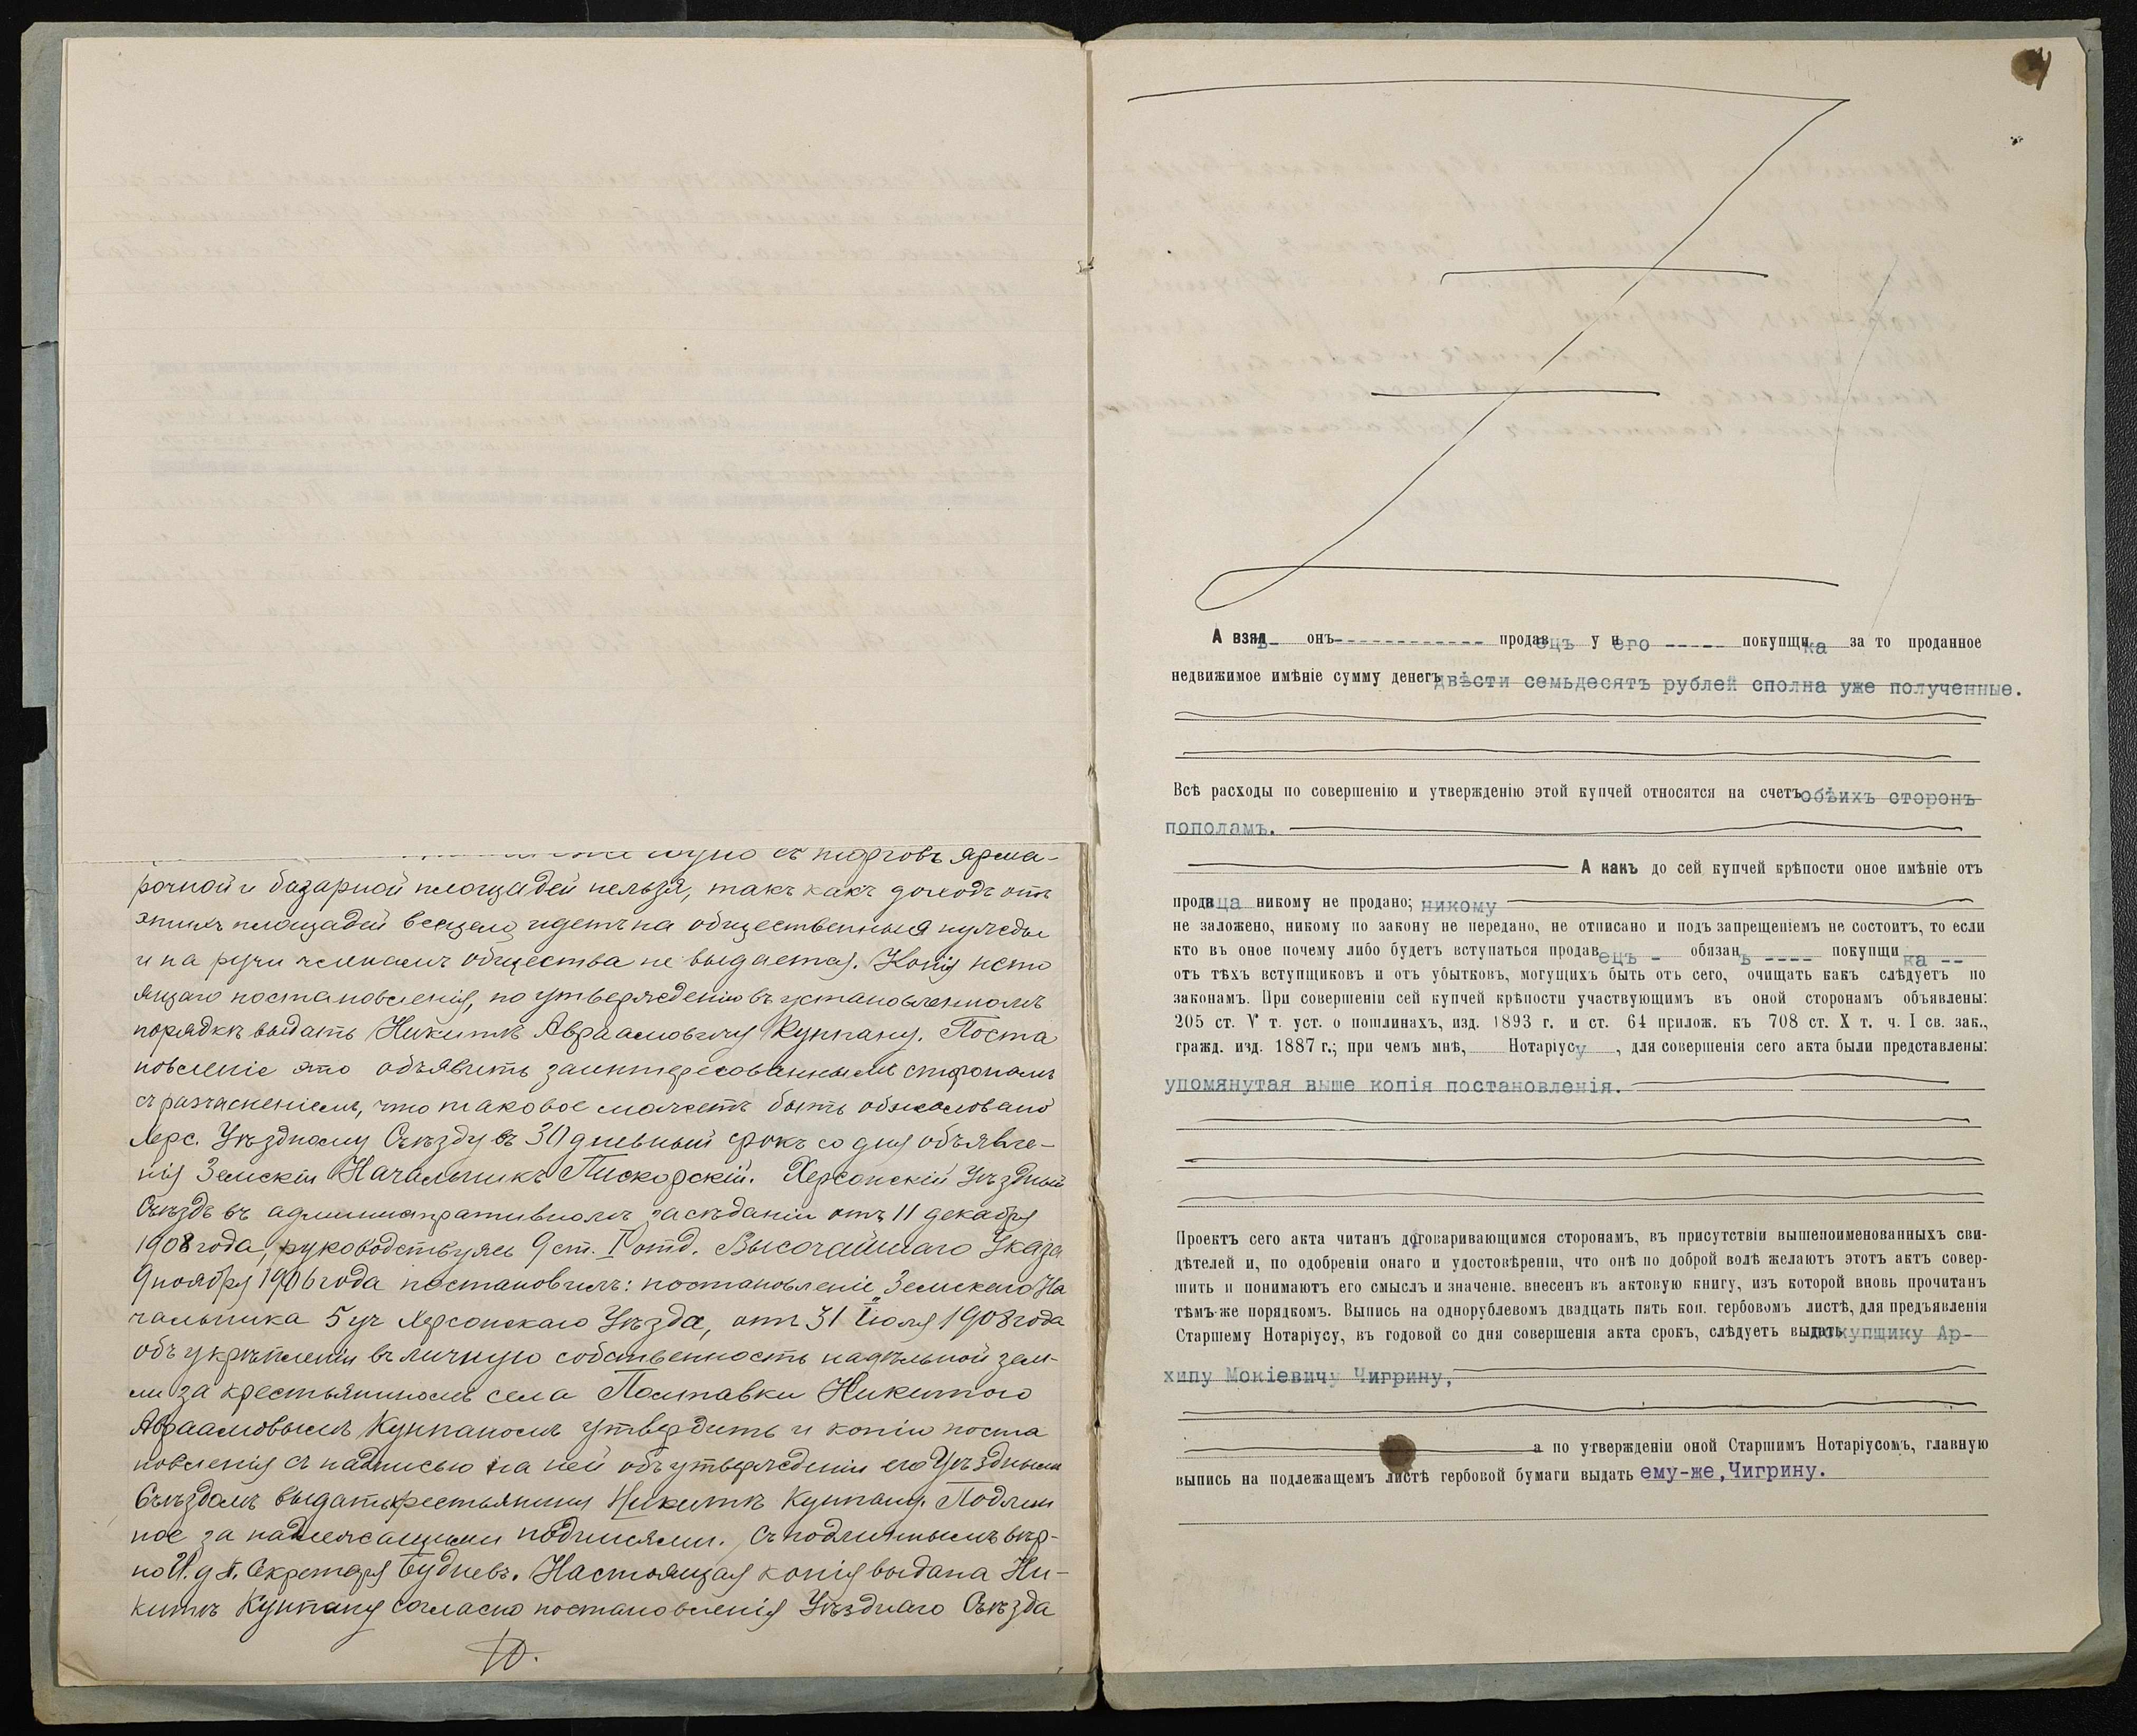 съ торговъ ярма-
рочной и базарной площадей нельзя, такъ какъ доходъ отъ
этихъ площадей всецело идетъ на общественныя нужды
и на руки членамъ общества не выдается. Копiя насто
ящаго постановленiя, по утвержденiю въ установленномъ
порядкѣ выдать Никитѣ Авраамовичу Куппану. Поста
новленiе это объявить заинтересованнымъ сторонамъ
съ разъясненiемъ, что таковое можетъ быть обжаловано
Херс. Уѣздному Съѣзду въ 30 дневный срокъ со дня объявле-
нiя Земскiй Начальникъ Пискорскiй. Херсонскiй Уѣздный
Съѣздъ въ административномъ засѣданiи отъ 11 декабря
1908 года, руководствуясь 9 ст. I отд. Высочайшаго Указа
9 ноября 1906 года постановилъ: постановленiе Земскаго На
чальника 5 уч Херсонскаго Уѣзда, отъ 31 Iюля 1908 года
объ укрѣпленiи въ личную собственность надѣльной зем-
ли за крестьяниномъ села Полтавки Никитою
Авраамовымъ Куппаномъ утвердить и копiю поста
новленiя съ надписью на ней объ утвержденiи его Уѣзднымъ
Съѣздомъ выдать крестьянину Никитѣ Куппану. Подлин
ное за надлежащими подписями. Съ подлиннымъ вѣр-
но И. д. Секретаря Будневъ. Настоящая копiя выдана Ни-
китѣ Куппану согласно постановленiя Уѣзднаго Съѣзда
4
А взялъ онъ------------ продавецъ у него ----- покупщика за то проданное
недвижимое имѣнiе сумму денегъ двѣсти семьдесятъ рублей сполна уже полученные.
Всѣ расходы по совершенiю и утвержденiю этой купчей относятся на счетъ обѣихъ сторонъ
пополамъ.
А какъ до сей купчей крѣпости оное имѣнiе отъ
продавца никому не продано; никому
не заложено, никому по закону не передано, не отписано и подъ запрещенiемъ не состоитъ, то если
кто въ оное почему либо будетъ вступаться продавецъ - обязанъ ---- покупщика --
отъ тѣхъ вступщиковъ и отъ убытковъ, могущихъ быть отъ сего, очищать какъ слѣдуетъ по
законамъ. При совершенiи сей купчей крѣпости участвующимъ въ оной сторонамъ объявлены:
205 ст. V т. уст. о пошлинахъ, изд. 1893 г. и ст. 64 прилож. къ 708 ст. X т. ч. I св. зак.,
гражд. изд. 1887 г.; при чемъ мнѣ, Нотарiусу, для совершенiя сего акта были представлены:
упомянутая выше копiя постановленiя.
Проектъ сего акта читанъ договаривающимся сторонамъ, въ присутствiи вышепоименованныхъ сви-
дѣтелей и, по одобренiи онаго и удостовѣренiи, что онѣ по доброй волѣ желаютъ этотъ актъ совер-
шить и понимаютъ его смыслъ и значенiе. внесенъ въ актовую книгу, изъ которой вновь прочитанъ
тѣмъ-же порядкомъ. Выпись на однорублевомъ двадцать пять коп. гербовомъ листѣ, для предъявленiя
Старшему Нотарiусу, въ годовой со дня совершенiя акта срокъ, слѣдуетъ выдать покупщику Ар-
хипу Мокiевичу Чигрину,
а по утвержденiи оной Старшимъ Нотарiусомъ, главную
выпись на подлежащемъ листѣ гербовой бумаги выдать ему-же, Чигрину.